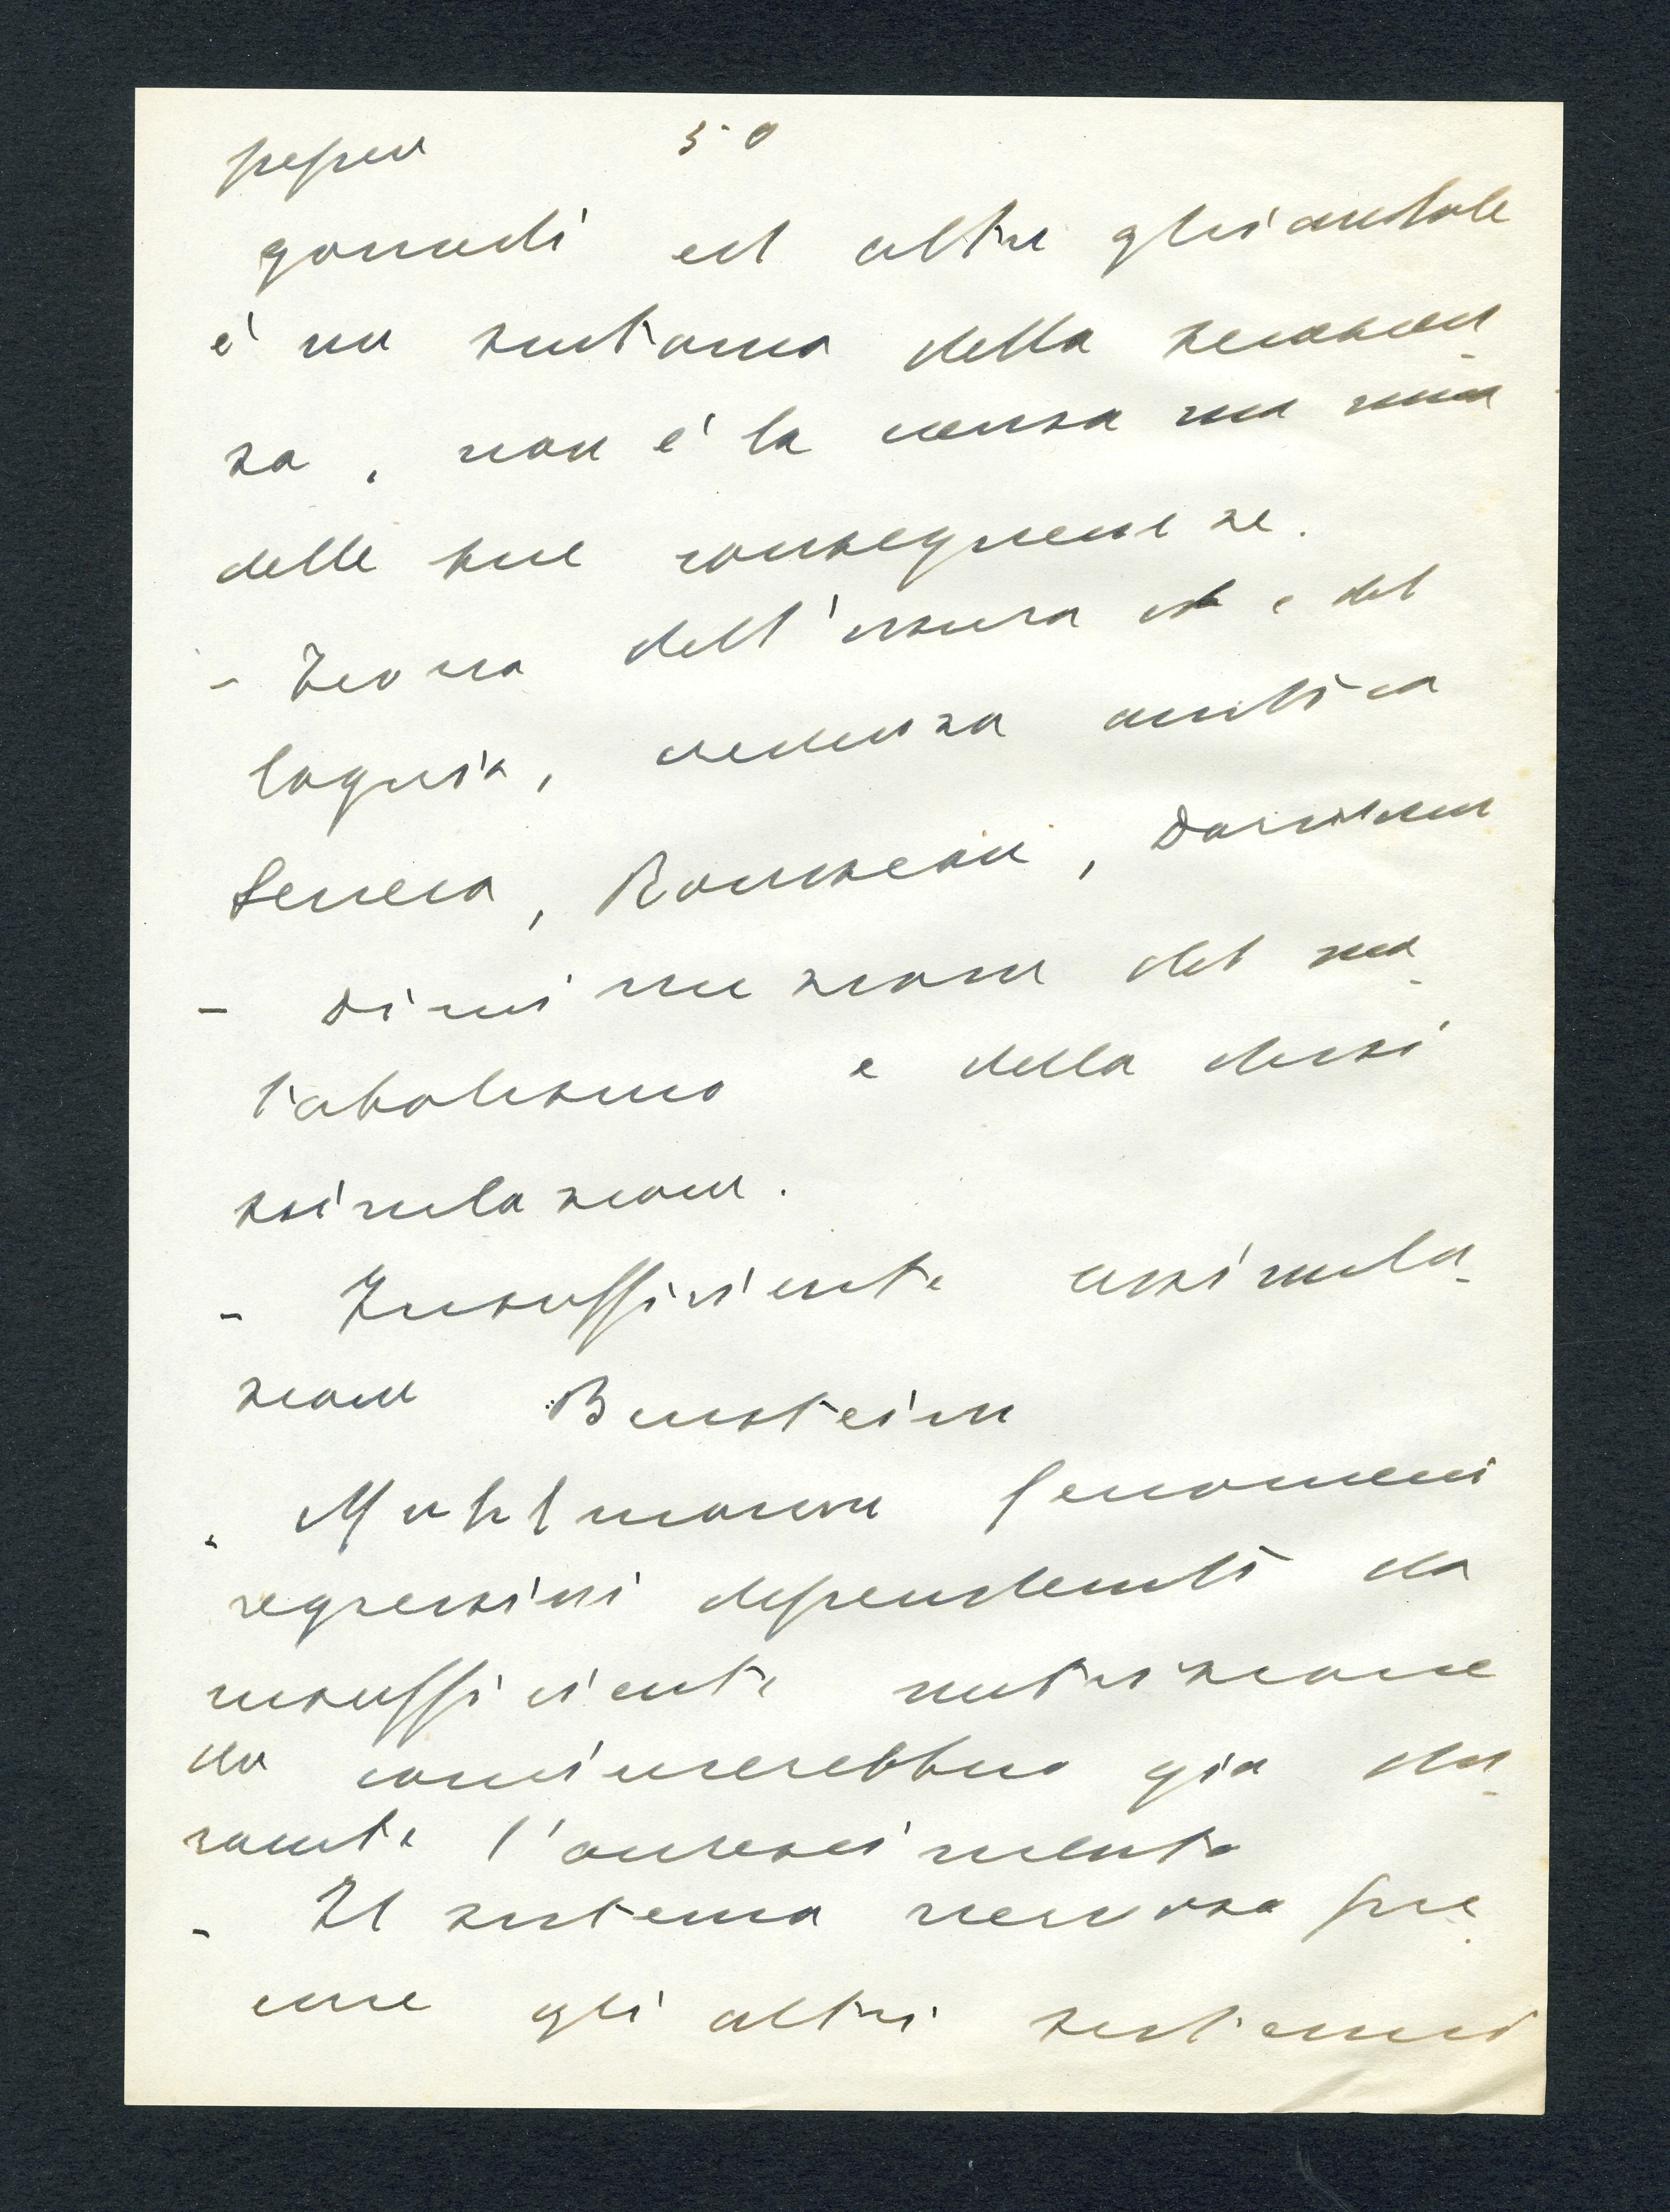 50
gonadi ed altre ghiandole
è un sintomo della senescen
za, non è la causa ma una
delle sue conseguenze.
- Teoria dell'usura e del
logorio, credenza antica
Seneca, Rousseau,
- Diminuzione del me-
tabolismo e della dissi
milazione.
- Insufficiente assimila-
zione Bernstein
- Mühlmann fenomeni
regressivi dependenti da
insufficiente nutrizione
comincerebbero già du-
rante l'accrescimento
- Il sistema nervoso pre-
cede gli altri sistemi